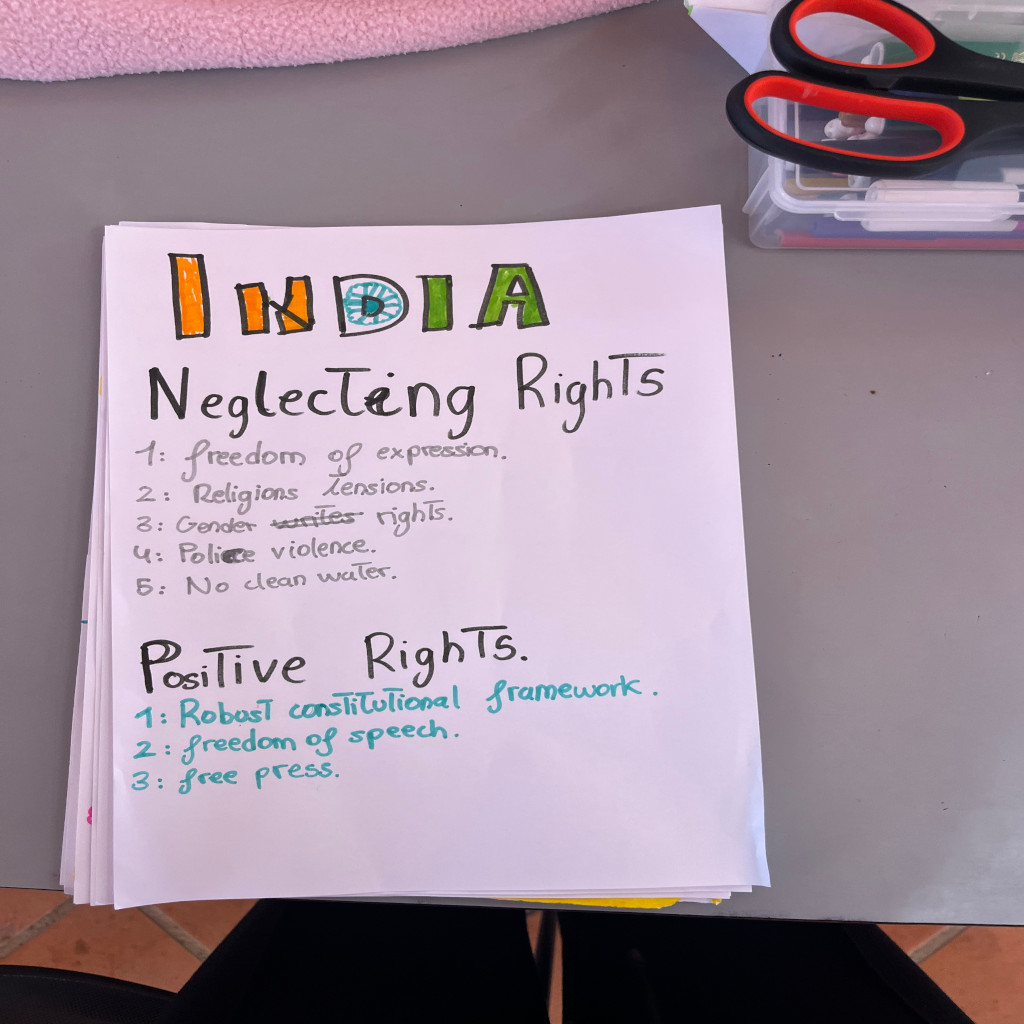 INDIA
Neglecting Rights
1: freedom of expression.
2: Religions tensions.
3: Gender writes rights.
4: Police violence.
5: No clean water.
Positive Rights.
1: Robust constitutional framework.
2: freedom of speech.
3: free press.